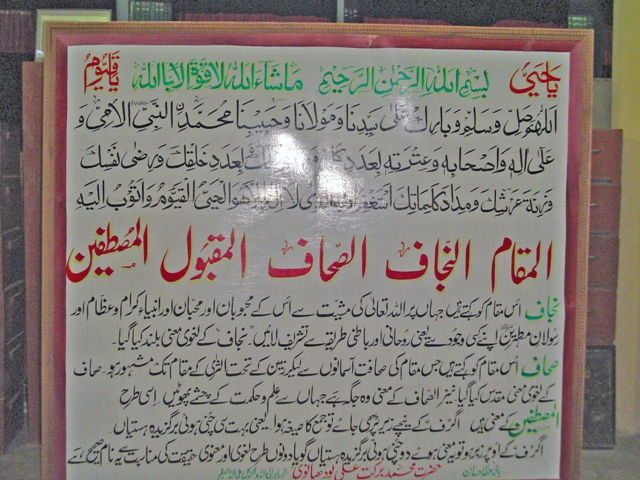 یاحیی بسم الله الرحمن الرحیم ماشاء الله لا قوة الا بالله یاقیوم
اللهم صل وسلم وبارك على سیدنا ومولانا وحبیبنا محمد النبی الامی و
على اله واصحابه وعترته بعدد كل بعدد خلقك ورضى نفسك
وزنة عرشك ومداد كلماتك استغفر الله الذی لا اله الا هو الحی القیوم واتوب الیه
المقام النجاف الصحاف المقبول المصطفین
نجاف اُس مقام کو کہتے ہیں جہاں پر اللہ تعالیٰ کی مشیت سے اُس کے محبوبان اور محبان اور انبیاء کرام و عظام اور
رسولان اپنے کسی وجود سے یعنی روحانی اور باطنی طریقہ سے تشریف لائیں۔ نجاف کے لغوی معنی بلند کیا گیا۔
صحاف اُس مقام کو کہتے ہیں جس مقام کی صحافت آسمانوں سے لیکر زمین کے تحت الثریٰ کے مقام تک مشہور ہو۔ صحاف
کے لغوی معنی مقدس کیا گیا نیز الصحاف کے معنی وہ جگہ ہے جہاں سے علم و حکمت کے چشمے پھوٹیں اسی طرح
المصطفین کے معنی ہیں اگر ف کے نیچے زیر پڑھی جائے تو جمع کا صیغہ ہوا یعنی بہت سی چُنی ہوئی برگزیدہ ہستیاں۔
اگر ف کے اوپر زبر ہو تو یہ معنی ہوئے دو چُنی ہوئی برگزیدہ ہستیاں گویا دونوں طرح لغوی اور معنوی حقیقت کی مناسبت سے یہ نام صحیح ہے
حضرت محمد برکت علی لودھیانوی